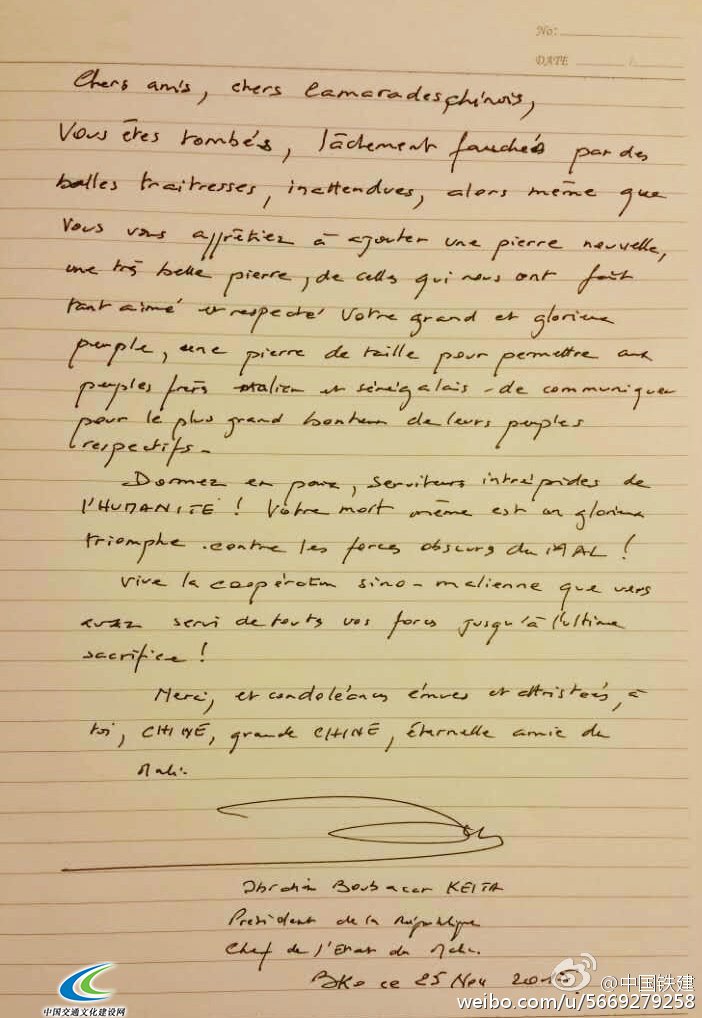 No:
DATE
Chers amis, chers Camarades chinois,
Vous êtes tombés, lâchement fauchés par des
balles traitresses, inattendues, alors même que
Vous vous apprêtiez à ajouter une pierre nouvelle,
une très belle pierre, de celles qui nous ont fait
tant aimé et respecté Votre grand et glorieux
peuple, une pierre de taille pour permettre aux
peuples frères malien et sénégalais - de communiquer
pour le plus grand bonheur de leurs peuples
respectifs -
Dormez en paix, serviteurs intrépides de
l'HUMANITÉ ! Votre mort même est un glorieux
triomphe contre les forces obscurs du MAL !
Vive la coopération sino-malienne que vous
avez servi de toutes vos forces jusqu'à l'ultime
sacrifice !
Merci, et condoléances émues et attristées, à
toi, CHINE, grande CHINE, éternelle amie du
Mali.
Ibrahim Boubacar KEITA
Président de la République
Chef de l'Etat du Mali.
BKo ce 25 Nov 2015.
中国交通文化建设网
@中国铁建
weibo.com/u/5669279258